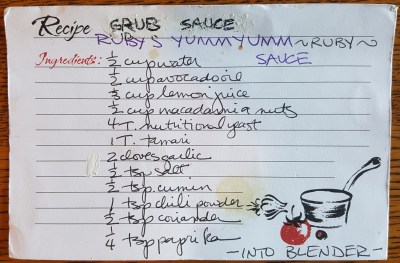 Recipe GRUB SAUCE
RUBY'S YUMMYUMM ~RUBY~
SAUCE
Ingredients: ½ cup water
½ cup avocado oil
⅓ cup lemon juice
½ cup macadamia nuts
4 T. nutritional yeast
1 T. tamari
2 cloves garlic
½ tsp salt
½ tsp. cumin
1 tsp chili powder
½ tsp coriander
¼ tsp paprika
-INTO BLENDER-